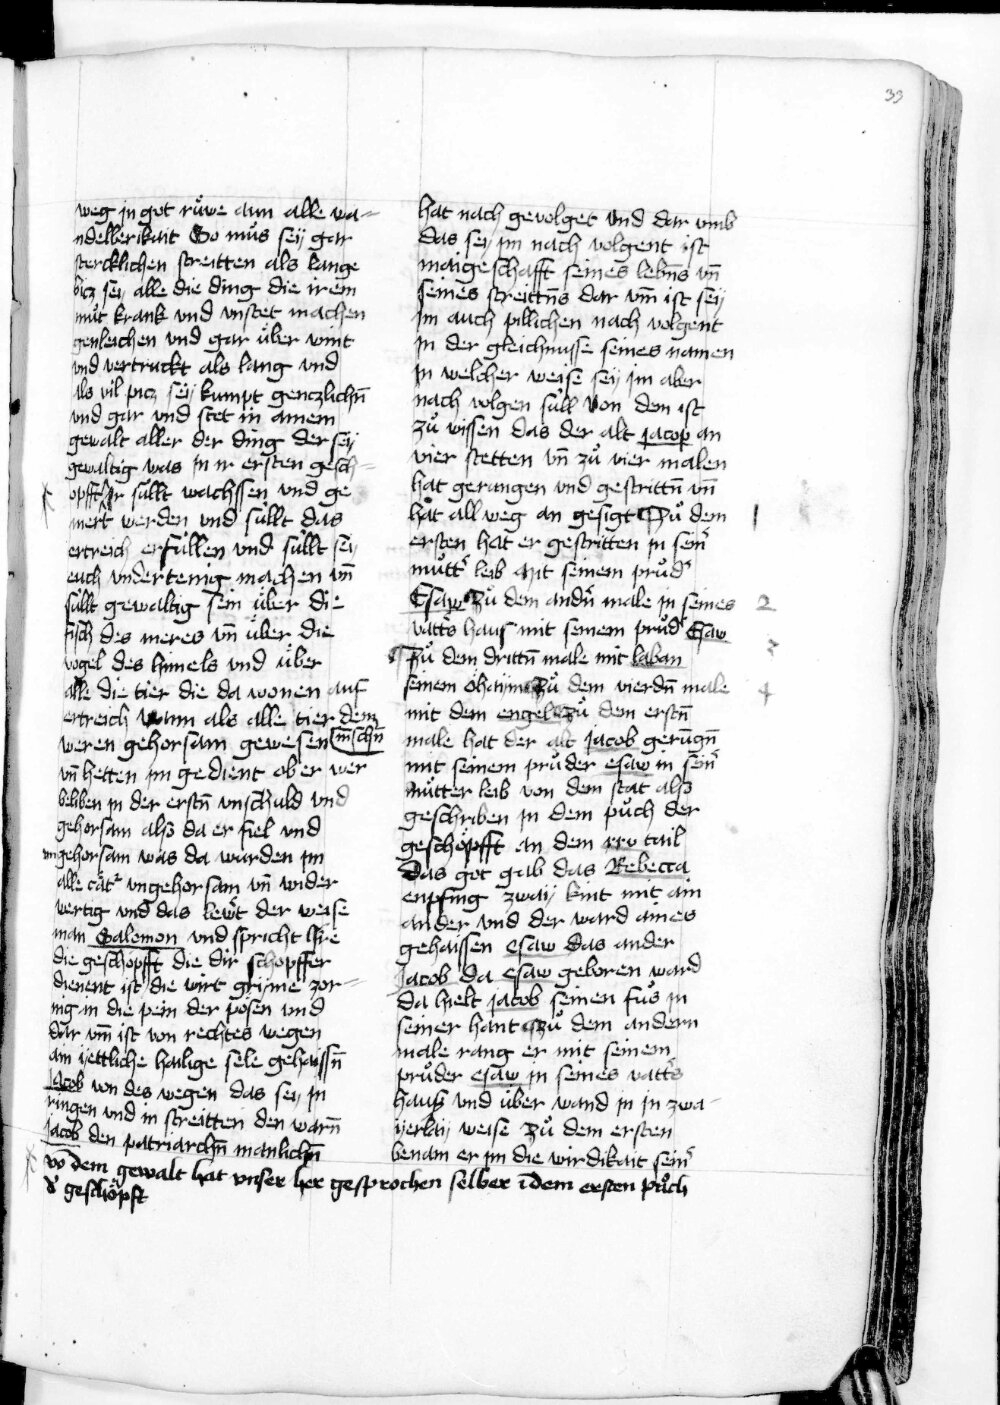 33
weg in got růwe aun alle wa-
ndelberikait So můs seÿ gar
stercklichen streitten als lange
bicz seÿ alle die ding die irem
můt krank vnd vnstet machen
genleichen vnd gar über wint
vnd vertruckt als lang vnd
als vil picz seÿ kumpt genczlichn̄
vnd gar vnd stet in amem
gewalt aller der ding der seÿ
gewaltig was in ir ersten gesch-
opfft Ir süllt wachssen vnd ge
mert werden vnd süllt das
ertreich erfüllen vnd süllt seÿ
euch vndertenig machen vn̄
süllt gewaltig sein über die
fisch des meres vn̄ über die
vogel des himels vnd über
alle die tier die da wonen auf
ertreich wann als alle tier dem
weren gehorsam gewesen menschn
vn̄ hetten im gedient ob er wer
beliben in der erstn̄ vnschuld vnd
gehorsam alß da er fiel vnd
vngehorsam was da warden im
alle cät² vngehorsam vn̄ wider
wertig vnd das lewt der weise
man Salemon vnd spricht Hre
die geschöpfft die dir schopffer
dienent ist die wirt grÿme zor-
nig in die pein der pösen vnd
dar vm̄ ist von rechtes wegen
ain ÿettliche hailige sele gehaissn̄
Jacob von des wegen das seÿ in
ringen vnd in streitten den warn̄
Jacob den patriarchn̄ manlichn̄
vō dem gewalt hat vnser her gesprochen selber ī dem ersten půch
d' geschöpft
hat nach gevolget vnd dar vmb
das seÿ im nach volgent ist
maigeschafft seines lebn̄s vn̄
seines streittn̄s dar vm̄ ist seÿ
im auch pillichen nach volgent
in der gleichnusse seines namen
In welcher weise seÿ im aber
nach volgen süll Von dem ist
zů wissen das der alt jacop an
vier stetten vn̄ zů vier malen
hat gerangen vnd gestrittn̄ vn̄
hat all weg an gesigt Zů dem 1
ersten hat er gestritten in sein̄'
můtt' leib mit seinem průd'
Esaw Zů dem andn̄ male in seines 2
vatt's haus mit seinem průd' Esaw
Zů dem drittn̄ male mit laban 3
seinem öhaÿm Zů dem vierdn̄ male 4
mit dem engel Zů dem erstn̄
male hat der alt Jacob gerūgn̄
mit seinem průder esaw in sein̄'
můtter leib von dem stat alß
geschriben in dem půch der
geschöpfft an dem xxv tail
Das got gab das Rebecca
enpfing zwaÿ kint mit ain
ander vnd der ward aines
gehaissen esaw das ander
Jacob da esaw geboren ward
da hielt jacob seinen fůs in
seiner hant Zů dem andern
male rang er mit seinem
průder esaw in seines vatt's
hauß vnd über wand in in zwa-
ÿerlaÿ weise Zů dem ersten
benam er im die wirdikait sein̄'